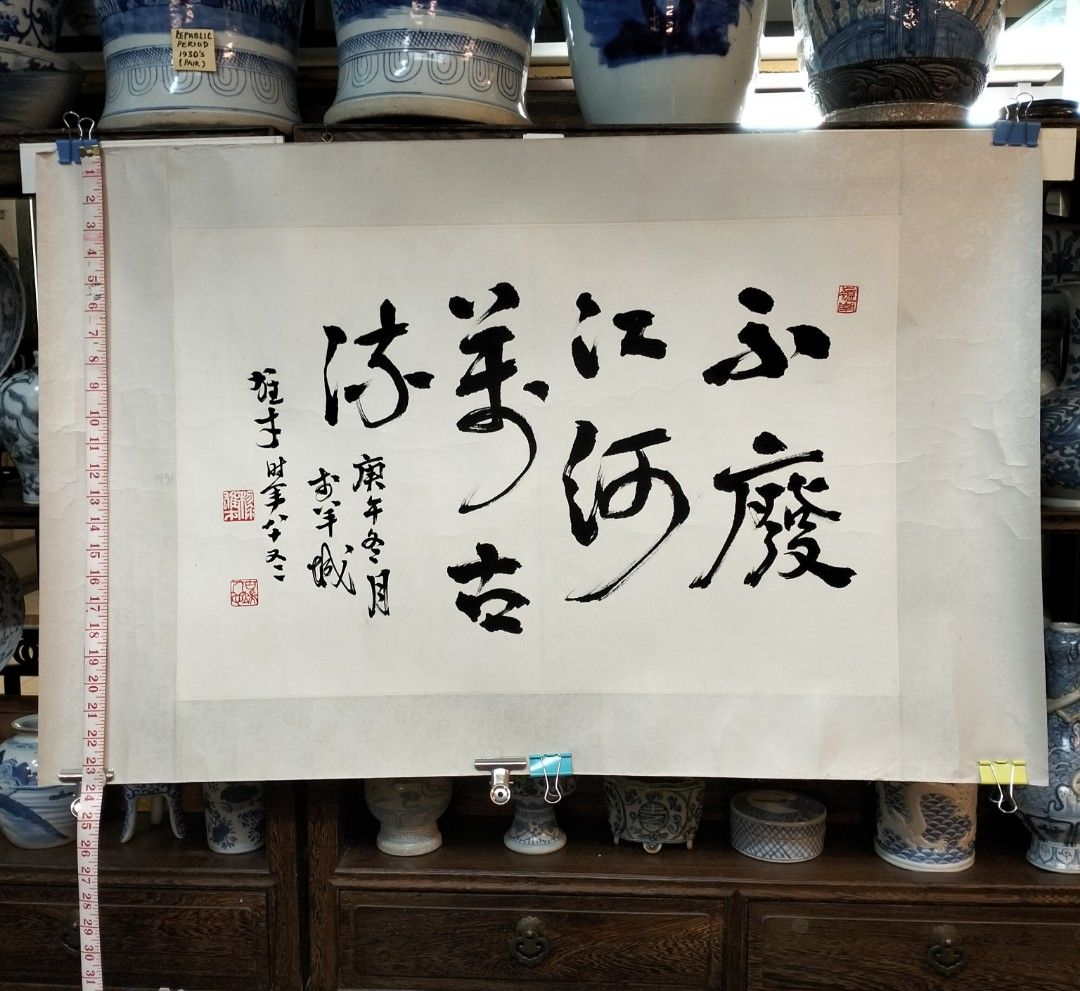 REPUBLIC
PERIOD
1930's
(PAIR)
不廢
江河
萬古
流
庚午冬月
於羊城
时年八十又二
1 2 3 4 5 6 7 8 9 10 11 12 13 14 15 16 17 18 19 20 21 22 23 24 25 26 27 28 29 30 31